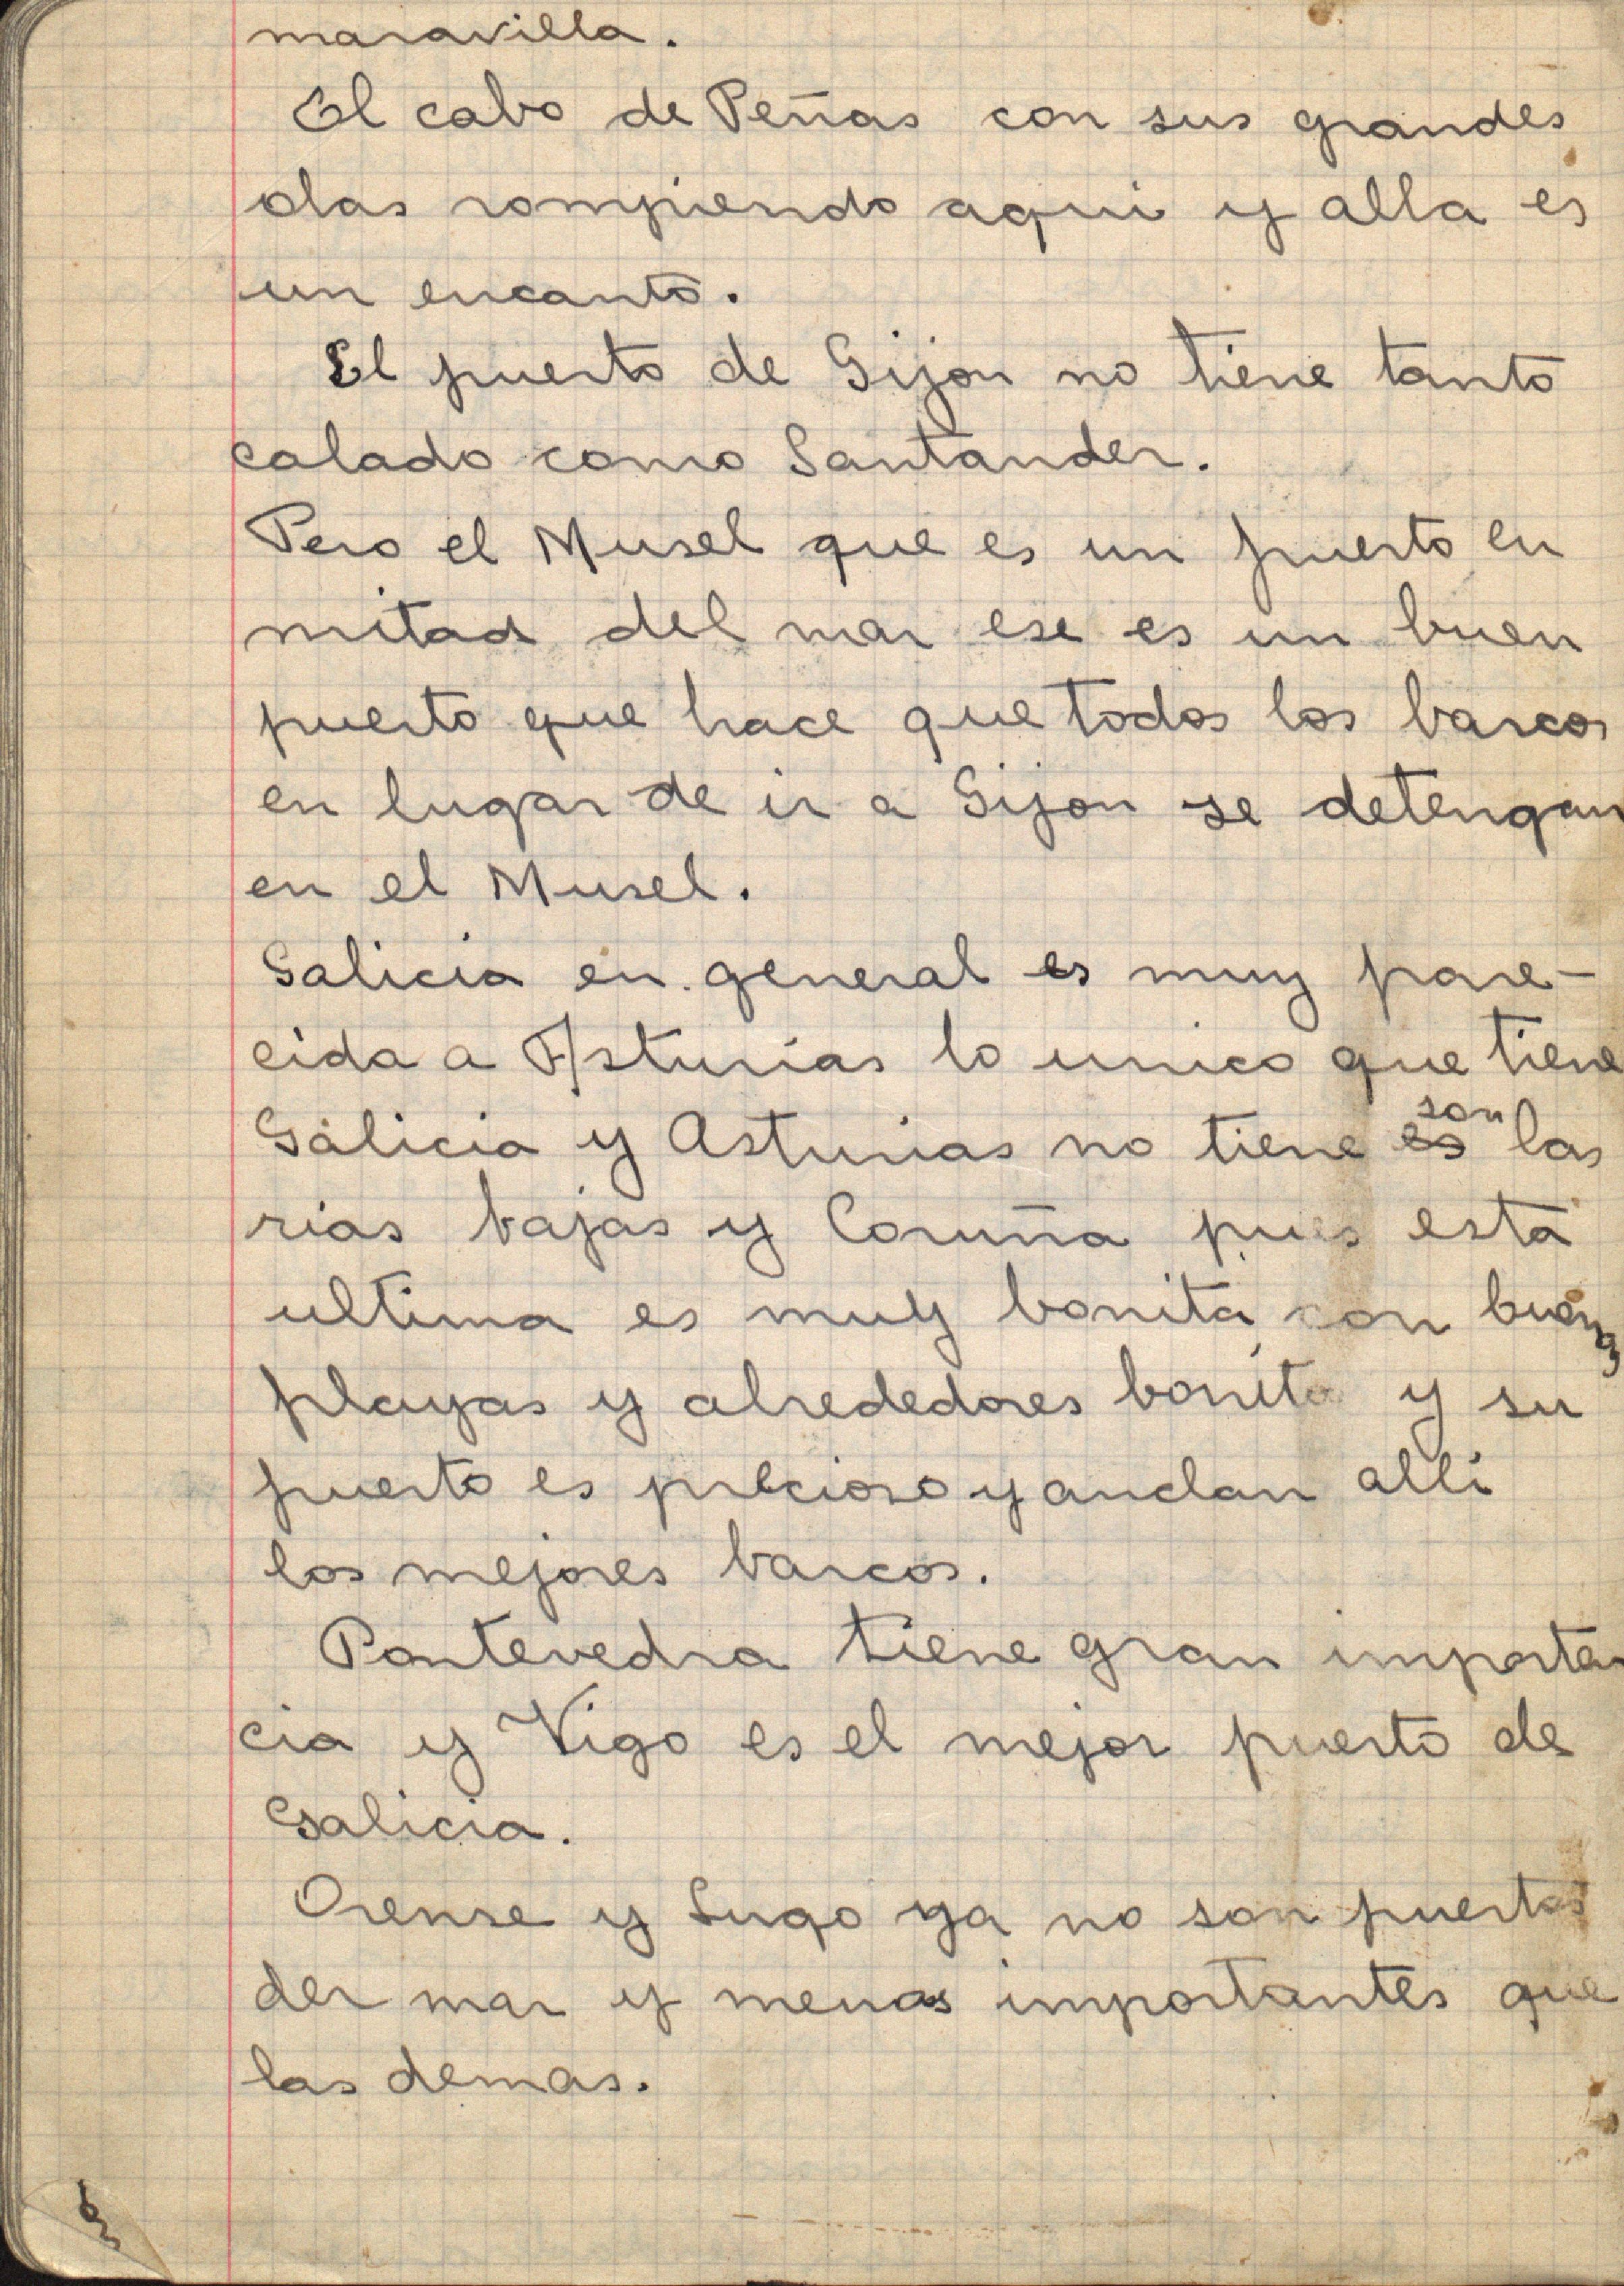 maravilla.
El cabo de Peñas con sus grandes
olas rompiendo aqui y alla es
un encanto.
El puerto de Gijon no tiene tanto
calado como Santander.
Pero el Musel que es un puerto en
mitad del mar ese es un buen
puerto que hace que todos los barcos
en lugar de ir a Gijon se detengan
en el Musel.
Galicia en general es muy pare-
cida a Asturias lo unico que tiene
son
Galicia y Asturias no tiene es las
rias bajas y Coruña pues esta
ultima es muy bonita, con buenas
playas y alrededores bonito y su
puerto es precioso y andan alli
los mejores barcos.
Pontevedra tiene gran importan
cia y Vigo es el mejor puerto de
Galicia.
Orense y Lugo ya no son puertos
der mar y menos importantes que
las demas.